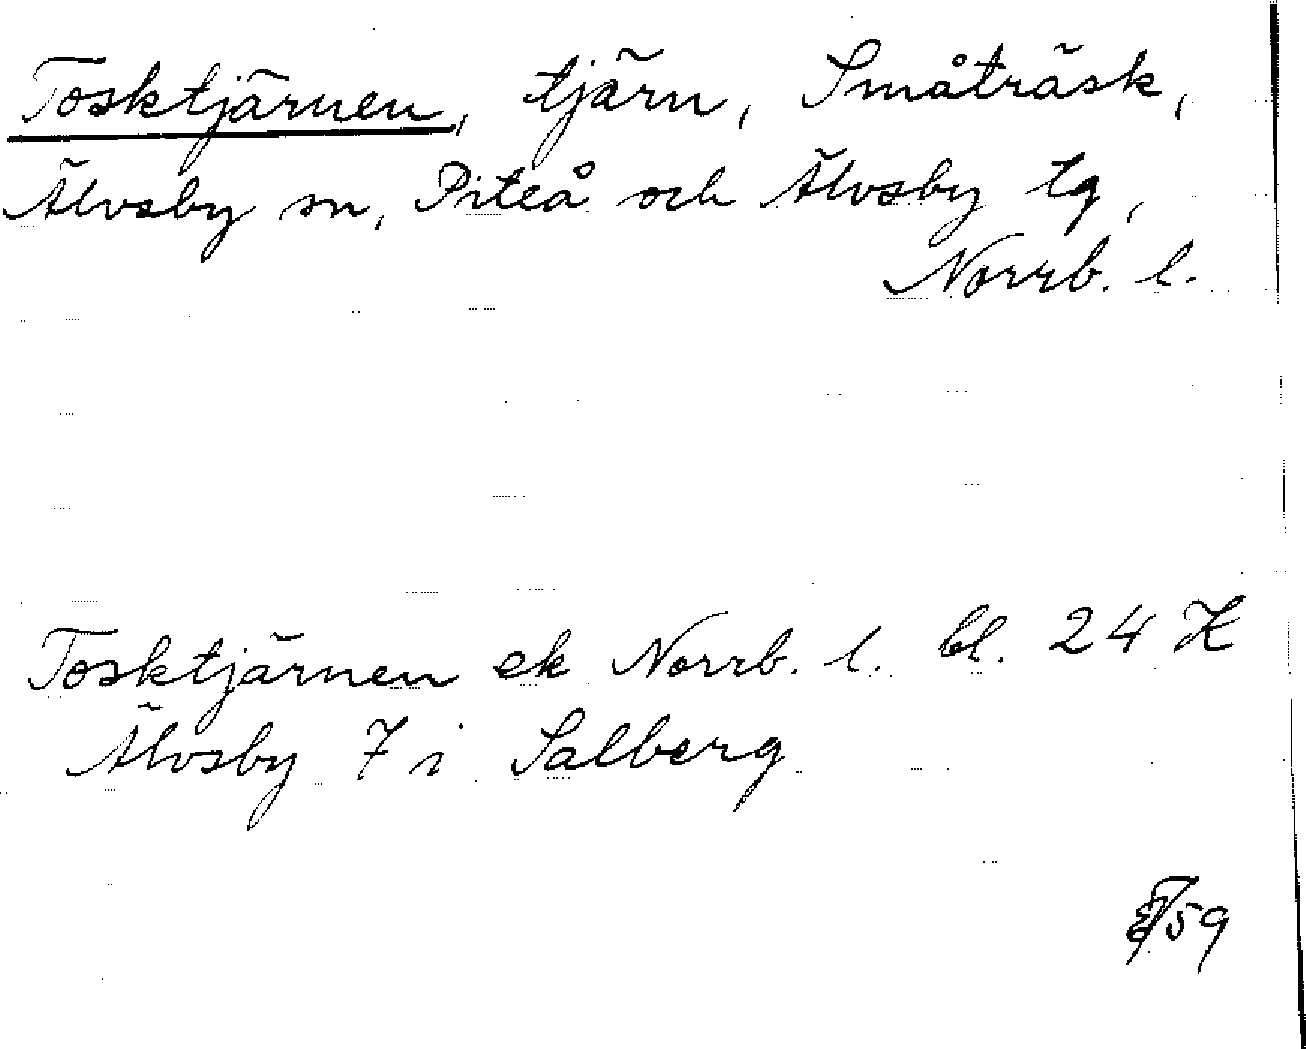 Tosktjärnen, tjärn, Småträsk,
Älvsby sn, Piteå och Älvsby tg,
Norrb. l.
Tosktjärnen ek Norrb. l. bl. 24 K
Älvsby 7 i Salberg
59